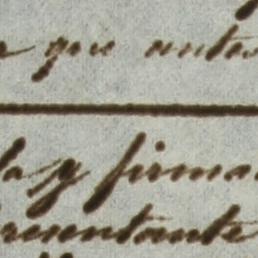 que antes
la y firma
resentante